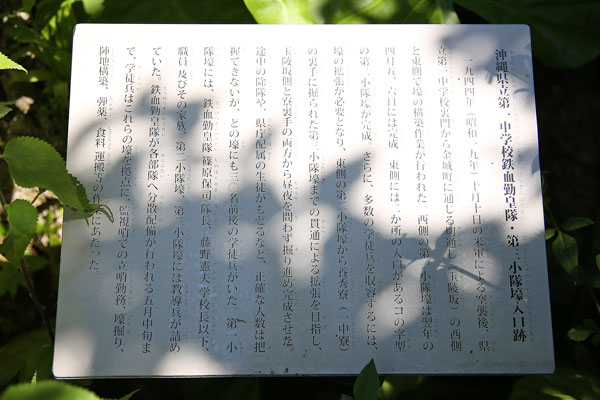 沖縄県立第一中学校鉄血勤皇隊・第三小隊壕入口跡
一九四四年(昭和一九年)十月十日の米軍による空襲後、県
立第一中学校裏門から金城町に通じる朝通し(玉陵坂)の西側
と東側で壕の構築作業が行われた。西側の第一小隊壕は翌年の
四月五、六日には完成、東側には二か所の入口があるコの字型
の第三小隊壕が完成。さらに、多数の学徒兵を収容するには、
壕の拡張が必要となり、東側の第三小隊壕から養秀寮(一中寮)
の裏手に掘られた第二小隊壕までの貫通による拡張を目指し、
玉陵坂側と寮裏手の両方から昼夜を問わず掘り進め完成させた。
途中の除隊や、県庁配属の生徒がもどるなど、正確な人数は把
握できないが、どの壕にも三〇名前後の学徒兵がいた。第一小
隊壕には、鉄血勤皇隊篠原保司隊長、藤野憲夫学校長以下、
職員及びその家族、第二小隊壕・第三小隊壕には教導兵が詰め
ていた。鉄血勤皇隊が各部隊へ分散配備が行われる五月中旬ま
で、学徒兵はこれらの壕を拠点に、監視哨での立哨勤務、壕掘り、
陣地構築、弾薬、食料運搬等の作業にあたった。